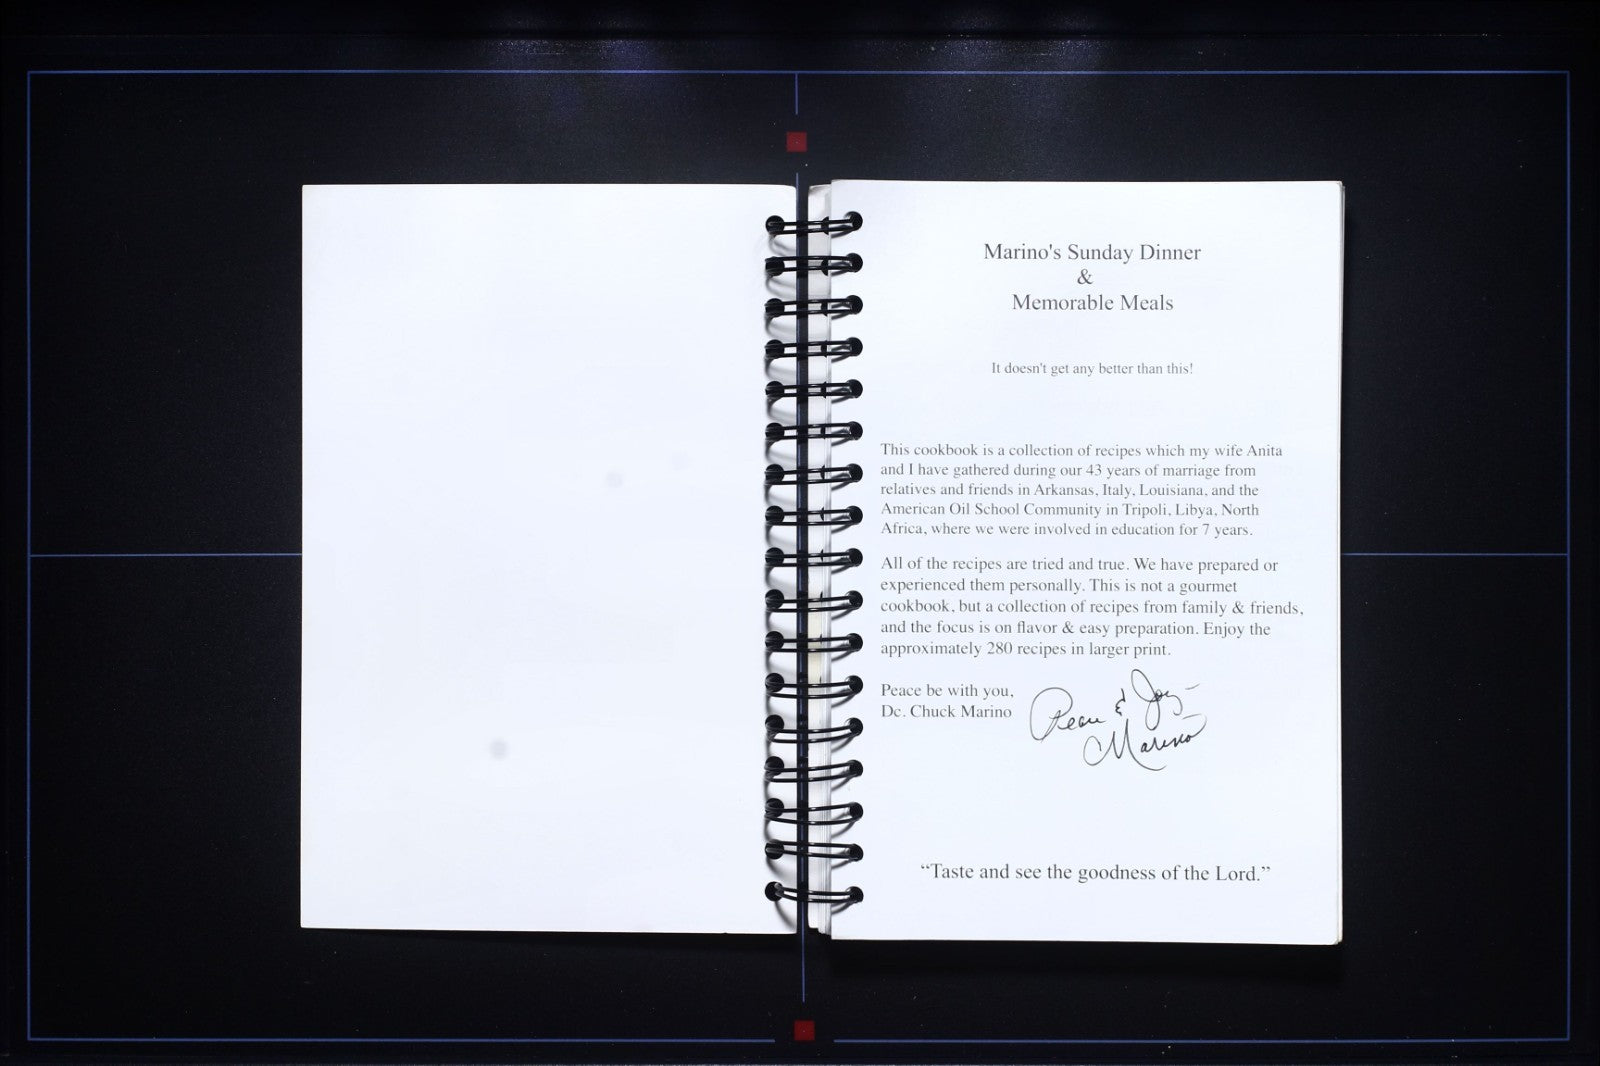 Marino's Sunday Dinner
&
Memorable Meals
It doesn't get any better than this!
This cookbook is a collection of recipes which my wife Anita
and I have gathered during our 43 years of marriage from
relatives and friends in Arkansas, Italy, Louisiana, and the
American Oil School Community in Tripoli, Libya, North
Africa, where we were involved in education for 7 years.
All of the recipes are tried and true. We have prepared or
experienced them personally. This is not a gourmet
cookbook, but a collection of recipes from family & friends,
and the focus is on flavor & easy preparation. Enjoy the
approximately 280 recipes in larger print.
Peace be with you,
Dc. Chuck Marino
Peace & Joy
Marino
“Taste and see the goodness of the Lord.”